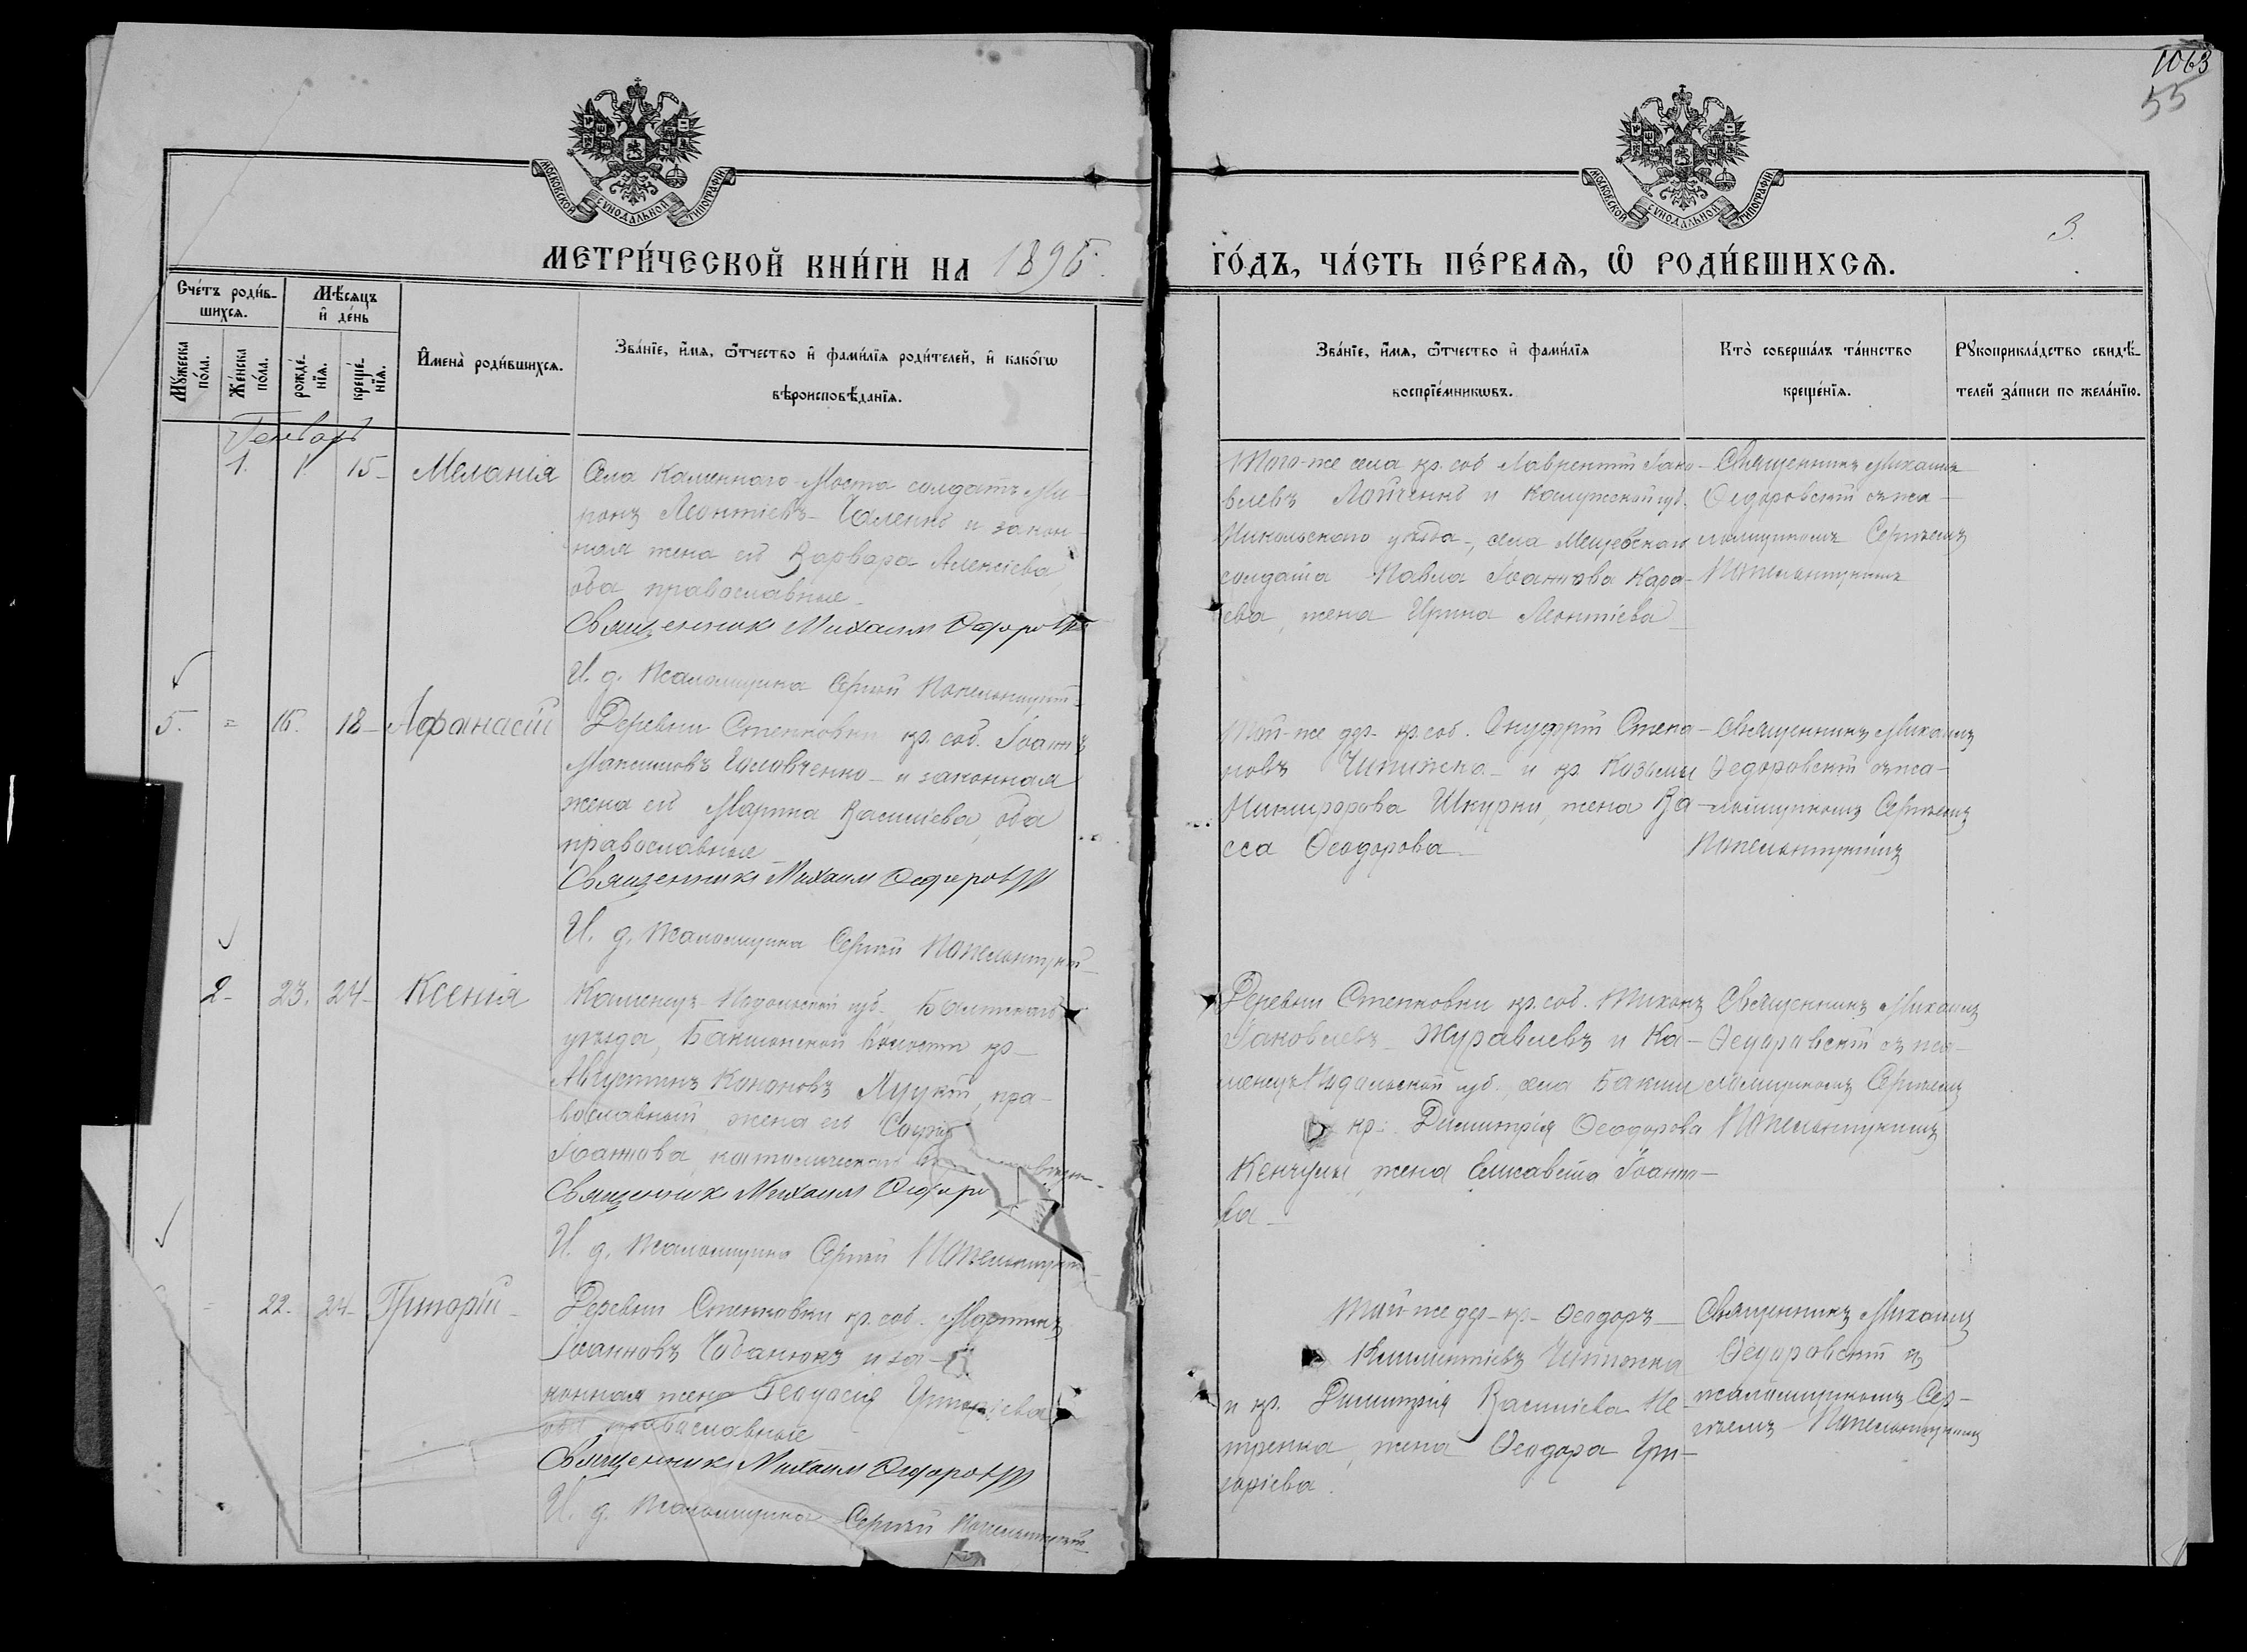 1063
55
МОСКОВСКОЙ СѴНОДАЛЬНОЙ ТИПОГРАФІИ
МОСКОВСКОЙ СѴНОДАЛЬНОЙ ТИПОГРАФІИ
3.
МЕТРИ́ЧЕСКОЙ КНИ́ГИ НА 1895. ГО́ДЪ, ЧА́СТЬ ПЕ́РВАѦ, Ѡ҆ РОДИ́ВШИХСѦ.
Сче́тъ роди́в-
шихсѧ.
Мꙋ́жеска по́ла.
Же́нска по́ла.
Мѣ́сѧцъ
и҆ де́нь
рожде́-
нїѧ.
креще́-
нїѧ.
И҆мена̀ роди́вшихсѧ.
Зва́нїе, и҆́мѧ, ѻ҆́тчество и҆ фами́лїѧ роди́телей, и҆ како́гѡ
вѣроисповѣ́данїѧ.
Зва́нїе, и҆́мѧ, ѻ҆́тчество и҆ фами́лїѧ
воспрїе́мникѡвъ.
Кто̀ соверша́лъ та́инство
креще́нїѧ.
Рꙋкоприкла́дство свидѣ́-
телей за́писи по жела́нїю.
Генварь
1. 1. 15 Меланія
Села Каменнаго-Моста солдатъ Ми-
ронъ Леонтіевъ и закон-
ная жена его Варвара Алексіева,
оба православные
Священникъ Михаилъ Ѳедоровскій
И. д. Псаломщика Сергій
Того-же села кр. соб. Лаврентій Іако-
влевъ и Калужской губ.
уѣзда, села
солдата Павла Іоаннова Кара-
ева, жена Ирина Леонтіева
Священникъ Михаилъ
Ѳедоровскій съ пса-
ломщикомъ Сергіемъ
5. = 18 Аѳанасій
Деревни Степковки кр. соб. Іоаннъ
Максимовъ Головченко и законная
жена его Марина Василіева, оба
православные
Священникъ Михаилъ Ѳедоровскій
И. д. Псаломщика Сергій
Той-же дер. кр. соб. Онуфрій Степа-
новъ Чипижко и кр. Козьмы
Никифорова Шкурки, жена Ва-
сса Ѳеодорова
Священникъ Михаилъ
Ѳедоровскій съ пса-
ломщикомъ Сергіемъ
2 23. 24 Ксенія
Каменецъ-Подольской губ., Балтскаго
уѣзда, Бакшанской волости кр.
Августинъ Кононовъ Луцкій, пра-
вославный, жена его
Іоаннова,
Священникъ Михаилъ
И. д. Псаломщика Сергій
Деревни Степковки кр. соб. Тихонъ
Іаковлевъ Журавлевъ и Ка-
менецъ-Подольской губ., села Бакши
кр. Димитрія Ѳеодорова
жена Елисавета Іоанно-
ва
Священникъ Михаилъ
Ѳедоровскій съ пса-
ломщикомъ Сергіемъ
= 22. 24 Григорій
Деревни Степковки кр. соб. Мартинъ
Іоанновъ Чобанюкъ и за-
конная жена Григоріева
оба православные
Священникъ Михаилъ Ѳедоровскій
И. д. Псаломщика Сергій
Той-же дер. кр. Ѳеодоръ
Климентіевъ Чипижко
и кр. Димитрія Василіева Пе-
тренка, жена Ѳеодора Гри-
горіева.
Священникъ Михаилъ
Ѳедоровскій съ
псаломщикомъ Сер-
гіемъ